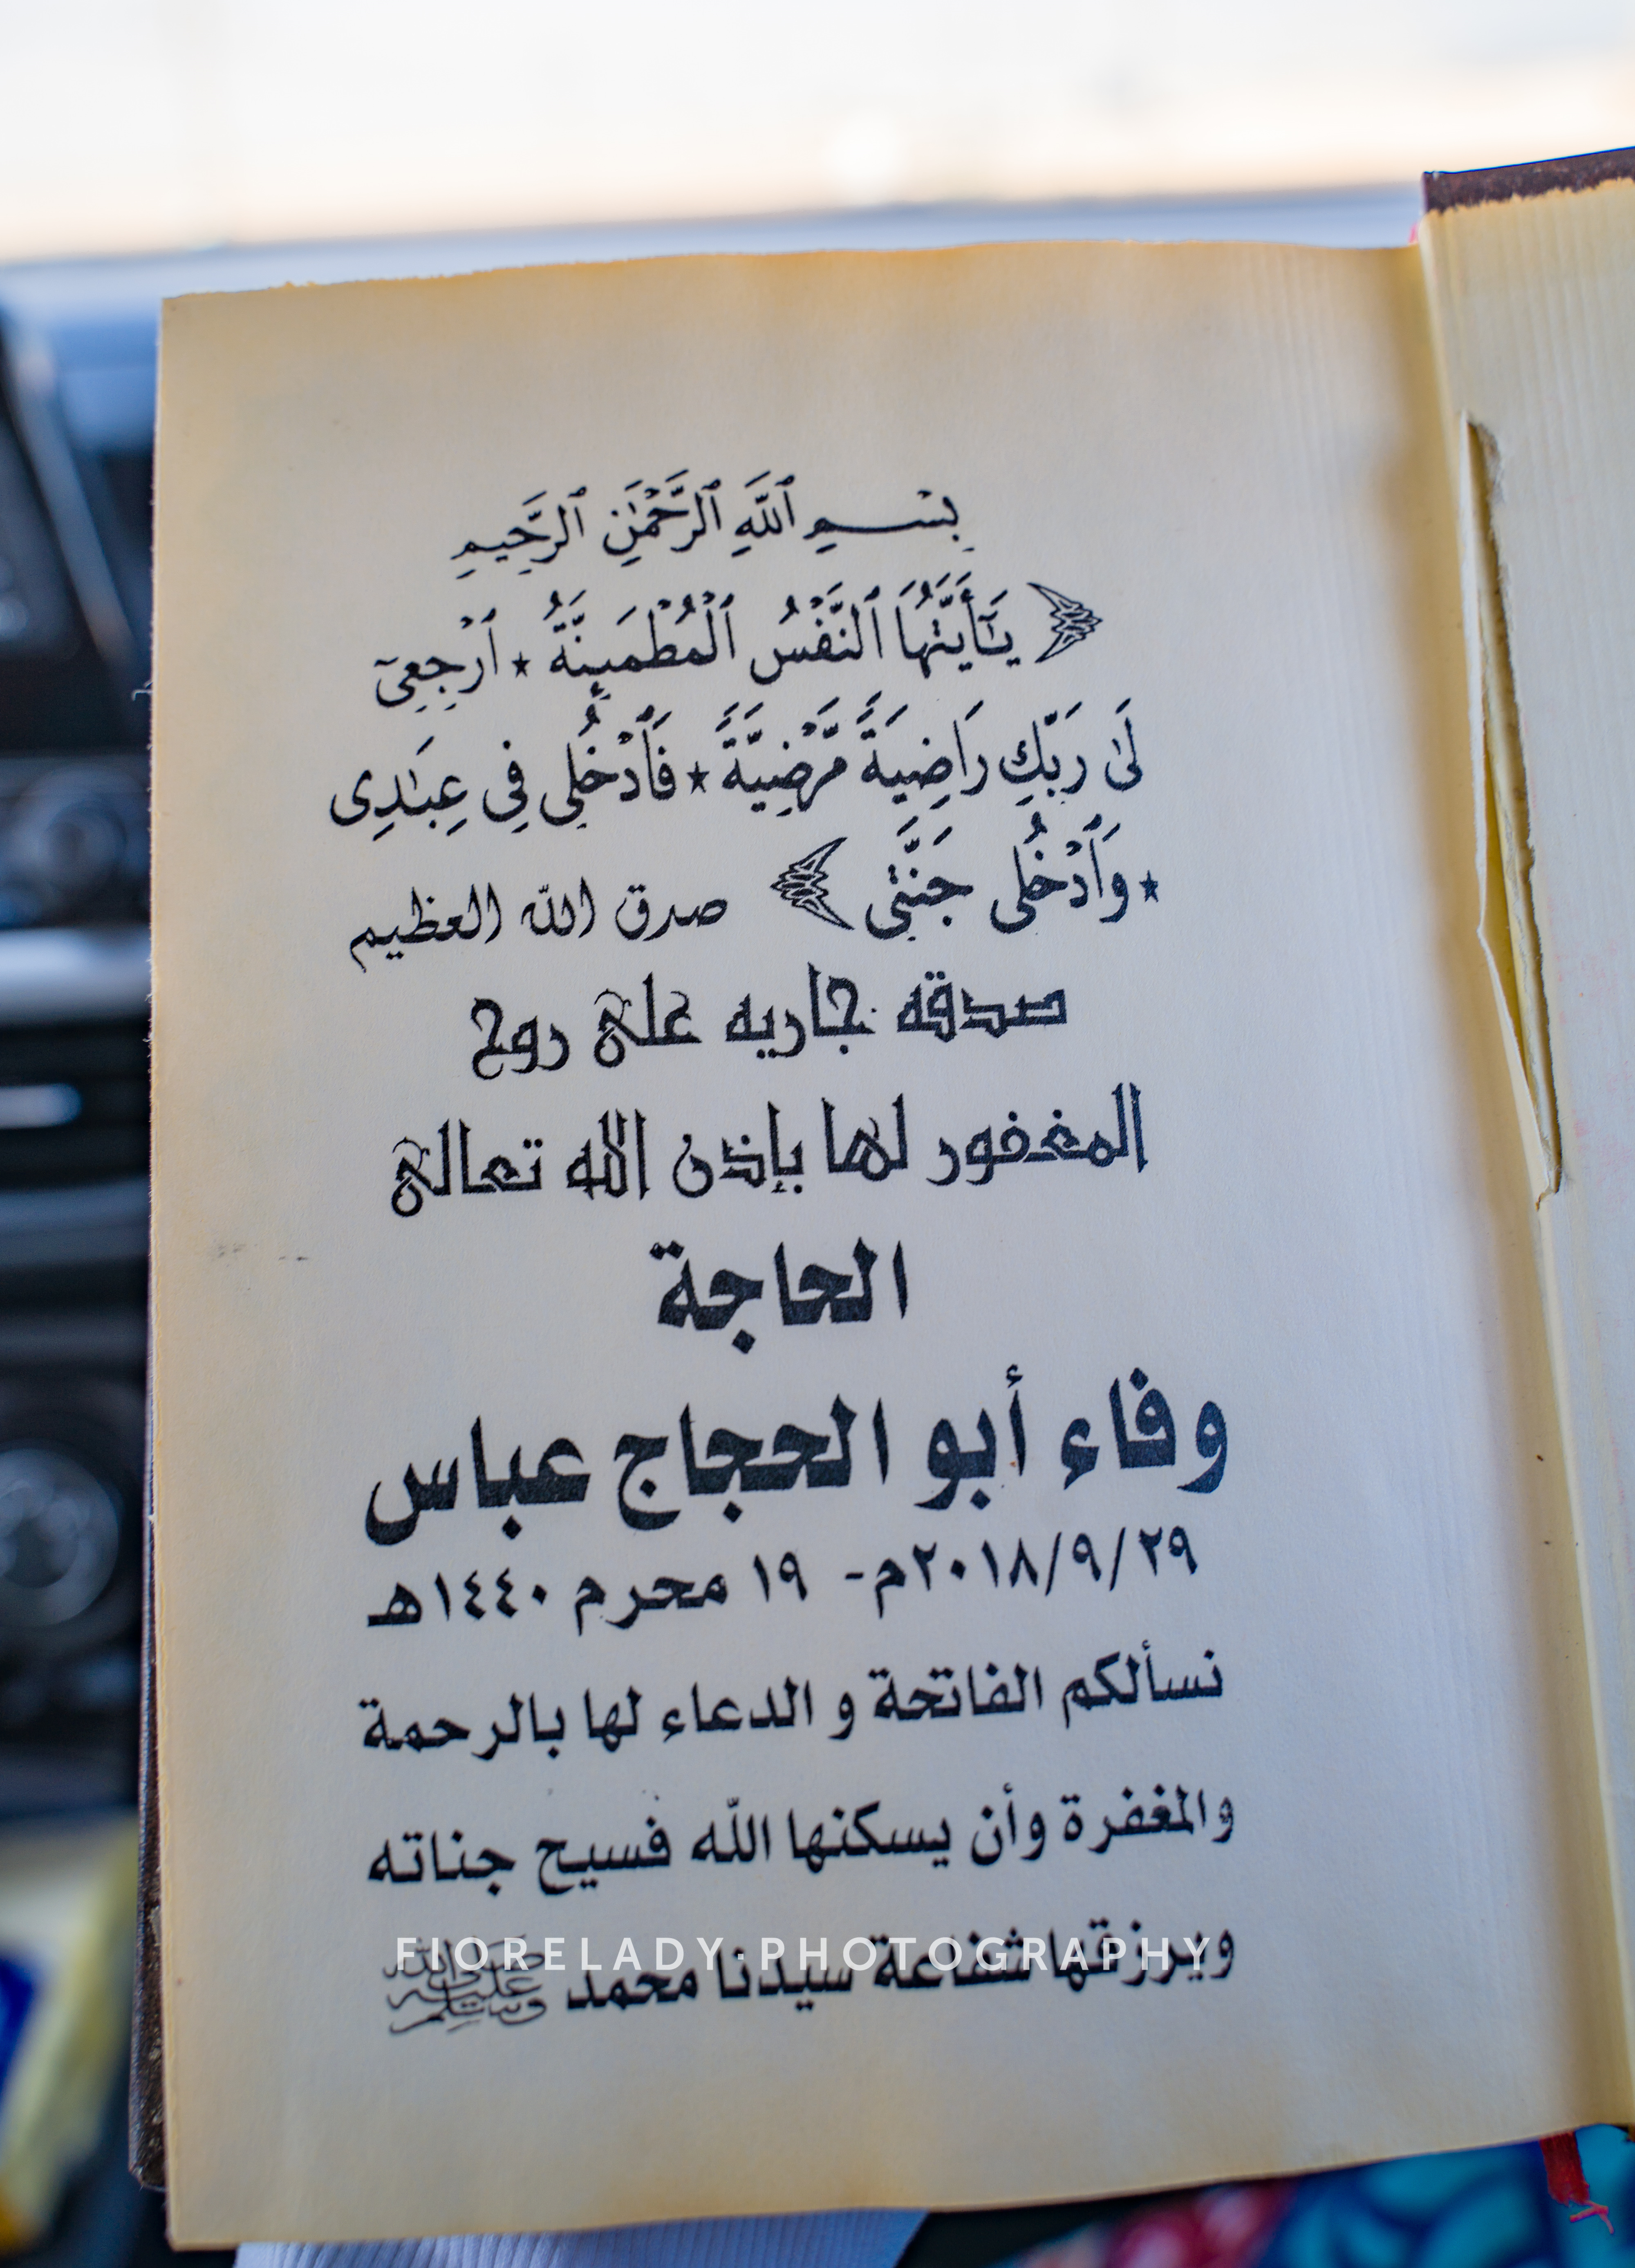 بِسْمِ ٱللَّهِ ٱلرَّحْمَٰنِ ٱلرَّحِيمِ
﴿ يَـٰٓأَيَّتُهَا ٱلنَّفْسُ ٱلْمُطْمَئِنَّةُ ★ ٱرْجِعِىٓ
لَىٰ رَبِّكِ رَاضِيَةً مَّرْضِيَّةً ★ فَٱدْخُلِى فِى عِبَـٰدِى
★ وَٱدْخُلِى جَنَّتِى ﴾ صدق الله العظيم
صدقه جاريه على روح
المغفور لها بإذن الله تعالى
الحاجة
وفاء أبو الحجاج عباس
٢٩/٩/٢٠١٨م - ١٩ محرم ١٤٤٠هـ
نسألكم الفاتحة و الدعاء لها بالرحمة
والمغفرة وأن يسكنها اللّه فسيح جناته
ويرزقها شفاعة سيدنا محمد ﷺ
FIORELADY·PHOTOGRAPHY